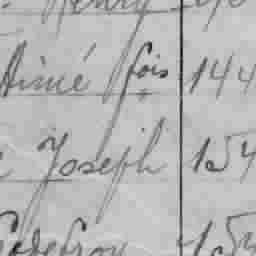 Henry
Aimé fois 144
Joseph 154
Godefroy 15